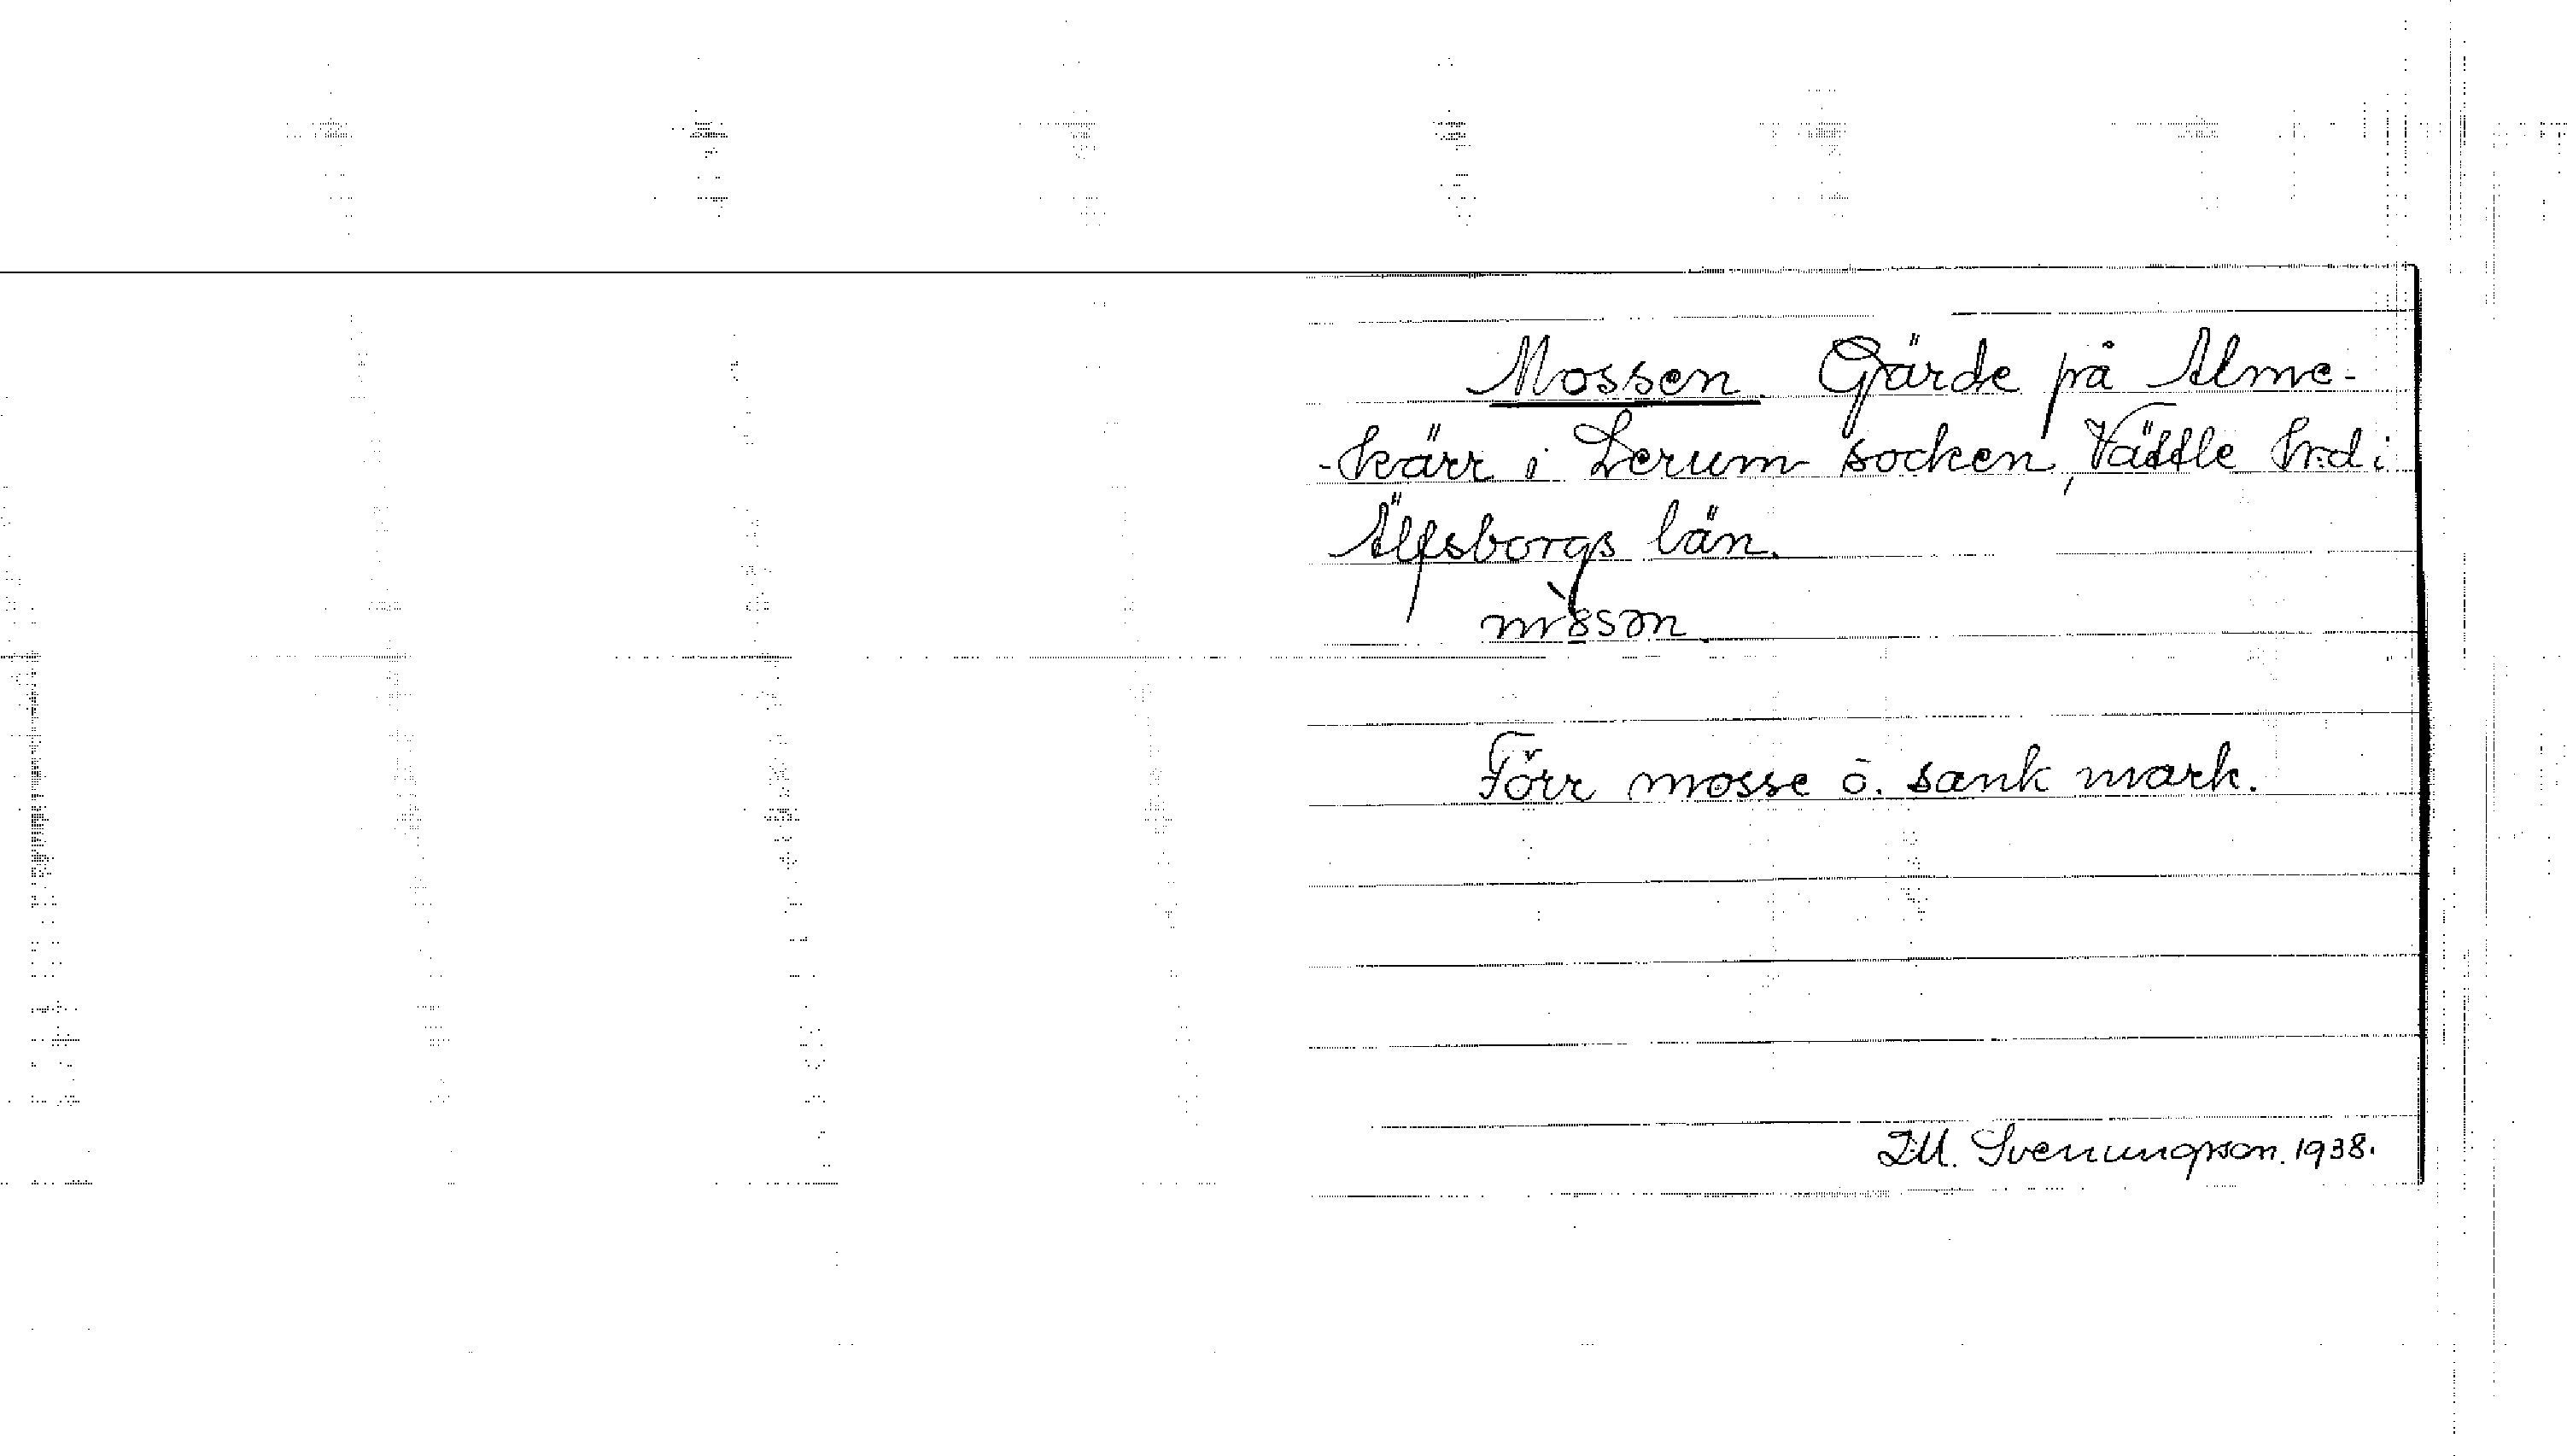 Mossen Gärde på Alme-
-kärr i Lerum socken, Vättle hrd i
Älfsborgs län.
Förr mosse o. sank mark.
I.M. Svenungsson. 1938.